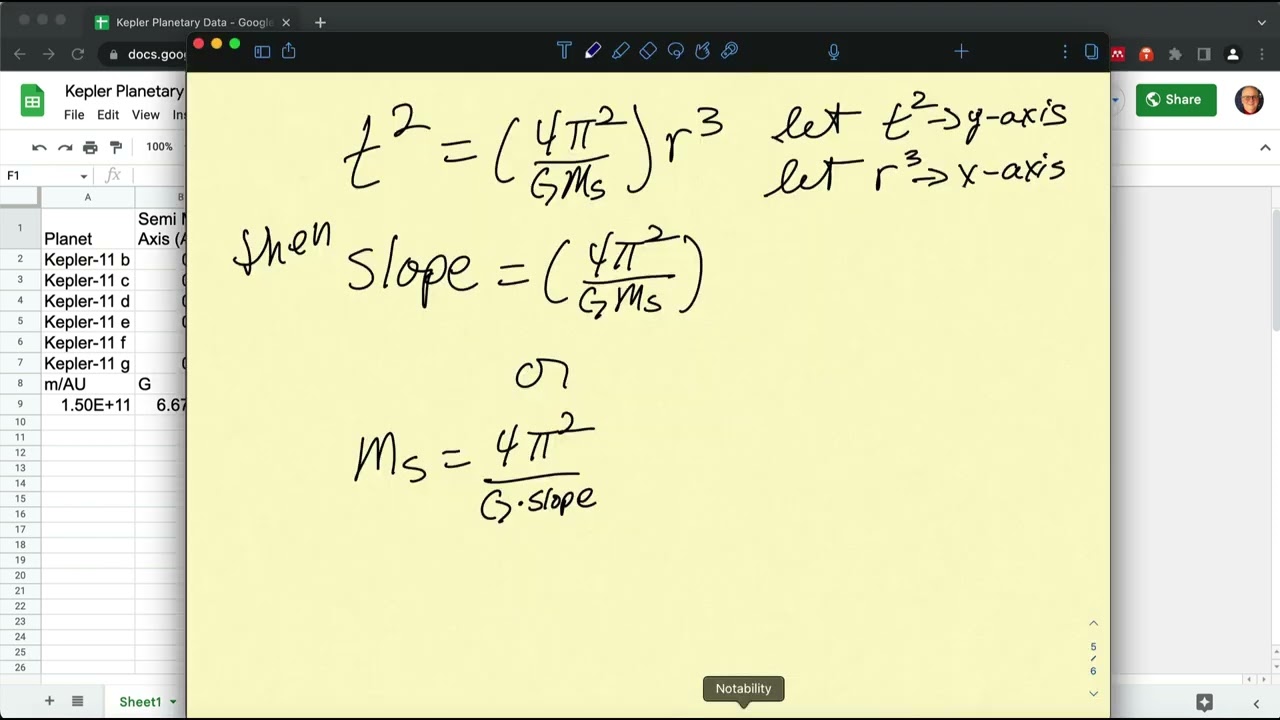 Kepler Planetary Data - Google
docs.goo
Kepler Planetary
File Edit View Ins
Share
100%
F1 fx
A B
1 Planet Semi M Axis (A
2 Kepler-11 b 0
3 Kepler-11 c 0
4 Kepler-11 d 0
5 Kepler-11 e 0
6 Kepler-11 f
7 Kepler-11 g 0
8 m/AU G
9 1.50E+11 6.67
10
11
12
13
14
15
16
17
18
19
20
21
22
23
24
25
26
Sheet1
t² = (4π²/GMs) r³ let t² => y-axis
let r³ => x-axis
then slope = (4π²/GMs)
or
Ms = 4π²/G·slope
5
/
6
Notability